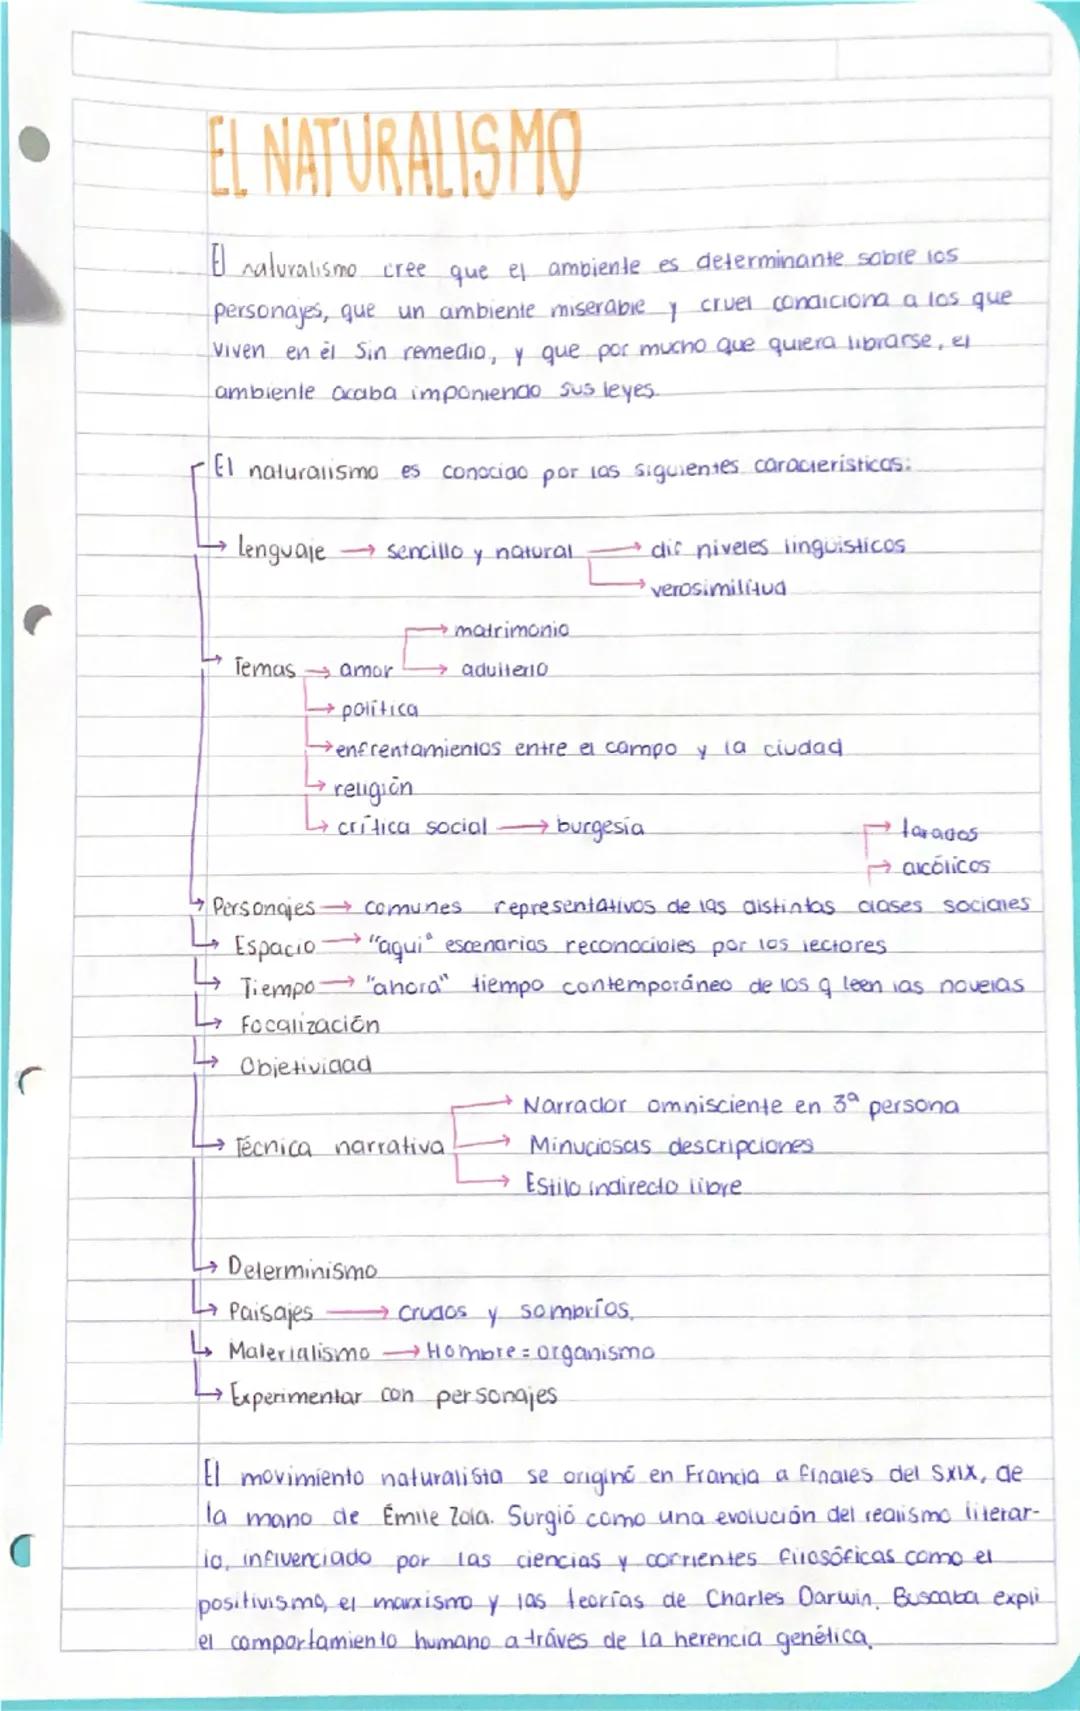 EL NATURALISMO
El naturalismo cree que el ambiente es determinante sobre los
personajes, que un ambiente miserable y cruel condiciona a los que
viven en él sin remedio, y que por mucho que quiera librarse, el
ambiente acaba imponiendo sus leyes.
El naturalismo es conocido por las siguientes características:
Lenguaje → sencillo y natural → dif niveles lingüísticos
→ verosimilitud
→ matrimonio
Temas → amor → adulterio
→ política
→ enfrentamientos entre el campo y la ciudad
→ religión
→ crítica social → burgesía → tarados
→ alcólicos
Personajes → comunes representativos de las distintas clases sociales
Espacio → "aqui" escenarios reconocibles por los lectores
Tiempo → "ahora" tiempo contemporáneo de los q leen las novelas
Focalización
Objetividad
→ Narrador omnisciente en 3ª persona
Técnica narrativa → Minuciosas descripciones
→ Estilo indirecto libre
Determinismo
Paisajes → crudos y sombríos.
Materialismo → Hombre = organismo
Experimentar con personajes
El movimiento naturalista se originó en Francia a finales del SXIX, de
la mano de Émile Zola. Surgió como una evolución del realismo literar-
io, influenciado por las ciencias y corrientes filosóficas como el
positivismo, el marxismo y las teorías de Charles Darwin. Buscaba expli
el comportamiento humano a tráves de la herencia genética.